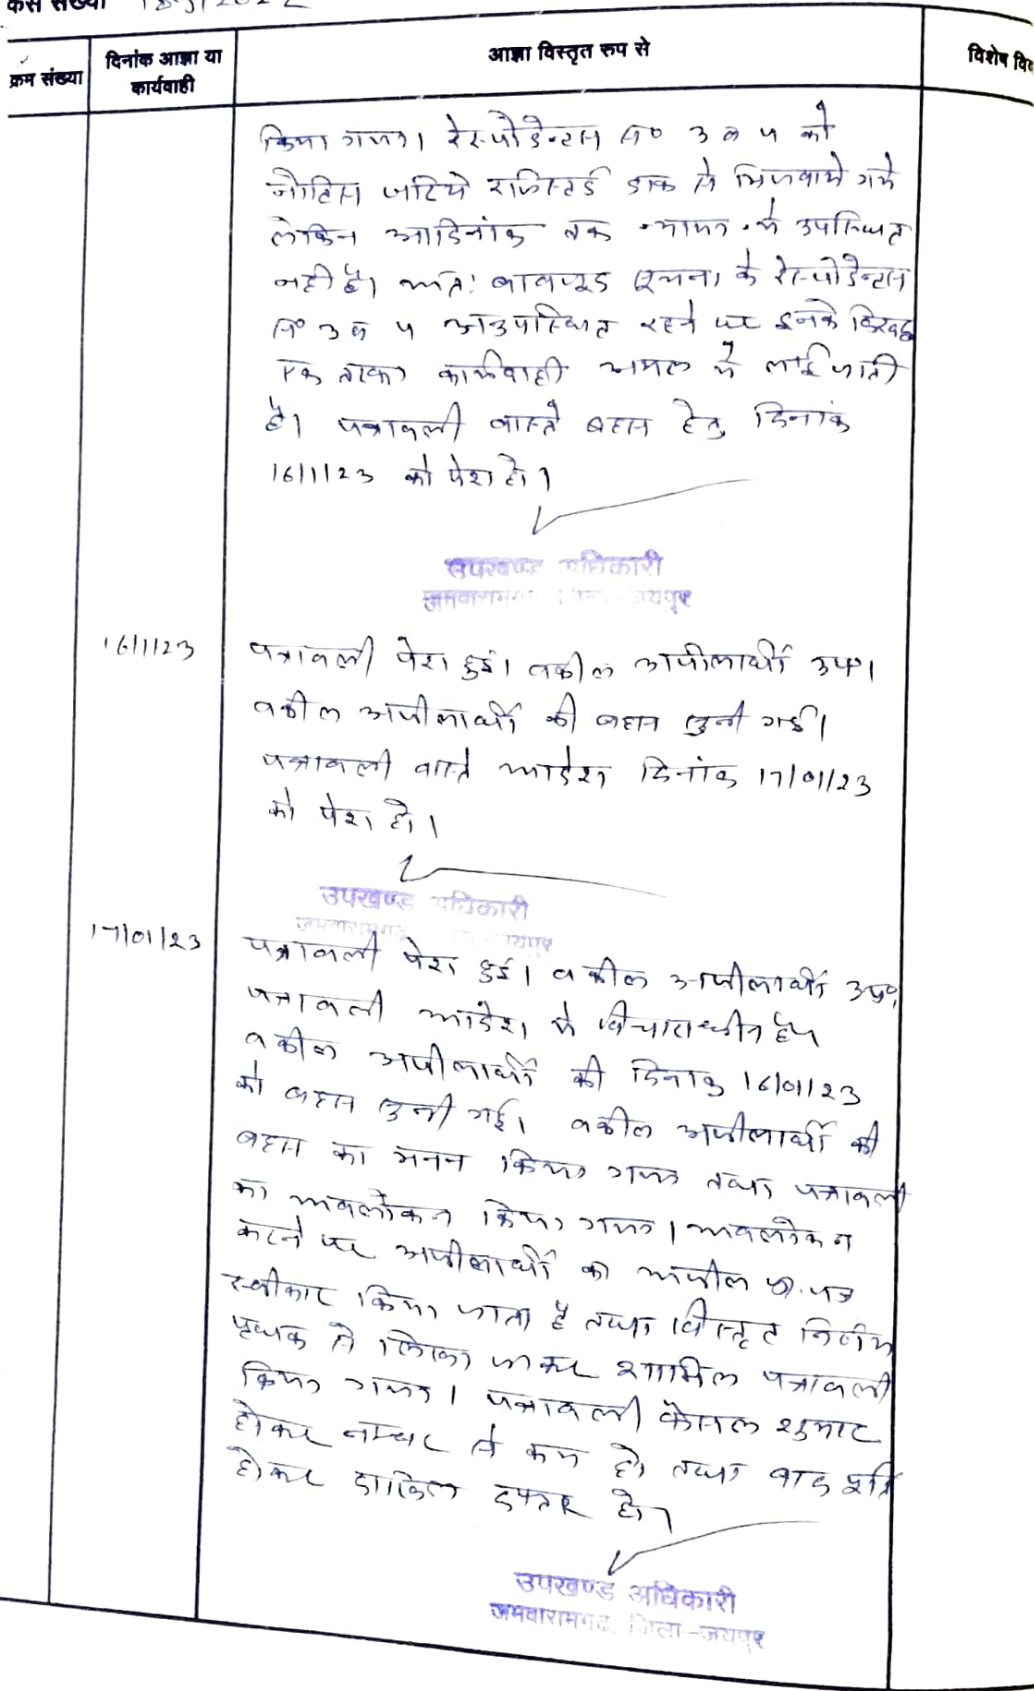 केस संख्या
क्रम संख्या
दिनांक आज्ञा या
कार्यवाही
आज्ञा विस्तृत रूप से
विशेष
किया गया। रेस्पोडेन्टस न० 3 व 4 को
नोटिस जरिये रजिस्टर्ड डाक से भिजवाये गये
लेकिन आदिनांक तक न्याया. में उपस्थित
नही है। अतः बावजूद सूचना के रेस्पोडेन्टस
न० 3 व 4 अनुपस्थित रहने पर इनके विरूद्ध
एक तरफा कार्यवाही अमल में लाई जाती
है। पत्रावली वास्ते बहस हेतु दिनांक
16/1/23 को पेश हो।
उपखण्ड अधिकारी
जमवारामगढ़ जिला-जयपुर
16/1/23
पत्रावली पेश हुई। वकील अपीलार्थी उप।
वकील अपीलार्थी की बहस सुनी गई।
पत्रावली वास्ते आदेश दिनांक 17/01/23
को पेश हो।
उपखण्ड अधिकारी
जमवारामगढ़ जिला-जयपुर
17/01/23
पत्रावली पेश हुई। वकील अपीलार्थी उप०
पत्रावली आदेश में विचाराधीन है।
वकील अपीलार्थी की दिनांक 16/01/23
को बहस सुनी गई। वकील अपीलार्थी की
बहस का मनन किया गया तथा पत्रावली
का अवलोकन किया गया। अवलोकन
करने पर अपीलार्थी का अपील प्रा. पत्र
स्वीकार किया जाता है तथा विस्तृत निर्णय
पृथक से लिखा जाकर शामिल पत्रावली
किया गया। पत्रावली फैसल शुमार
होकर नम्बर से कम हो तथा बाद
होकर दाखिल दफ्तर हो।
उपखण्ड अधिकारी
जमवारामगढ़ जिला-जयपुर